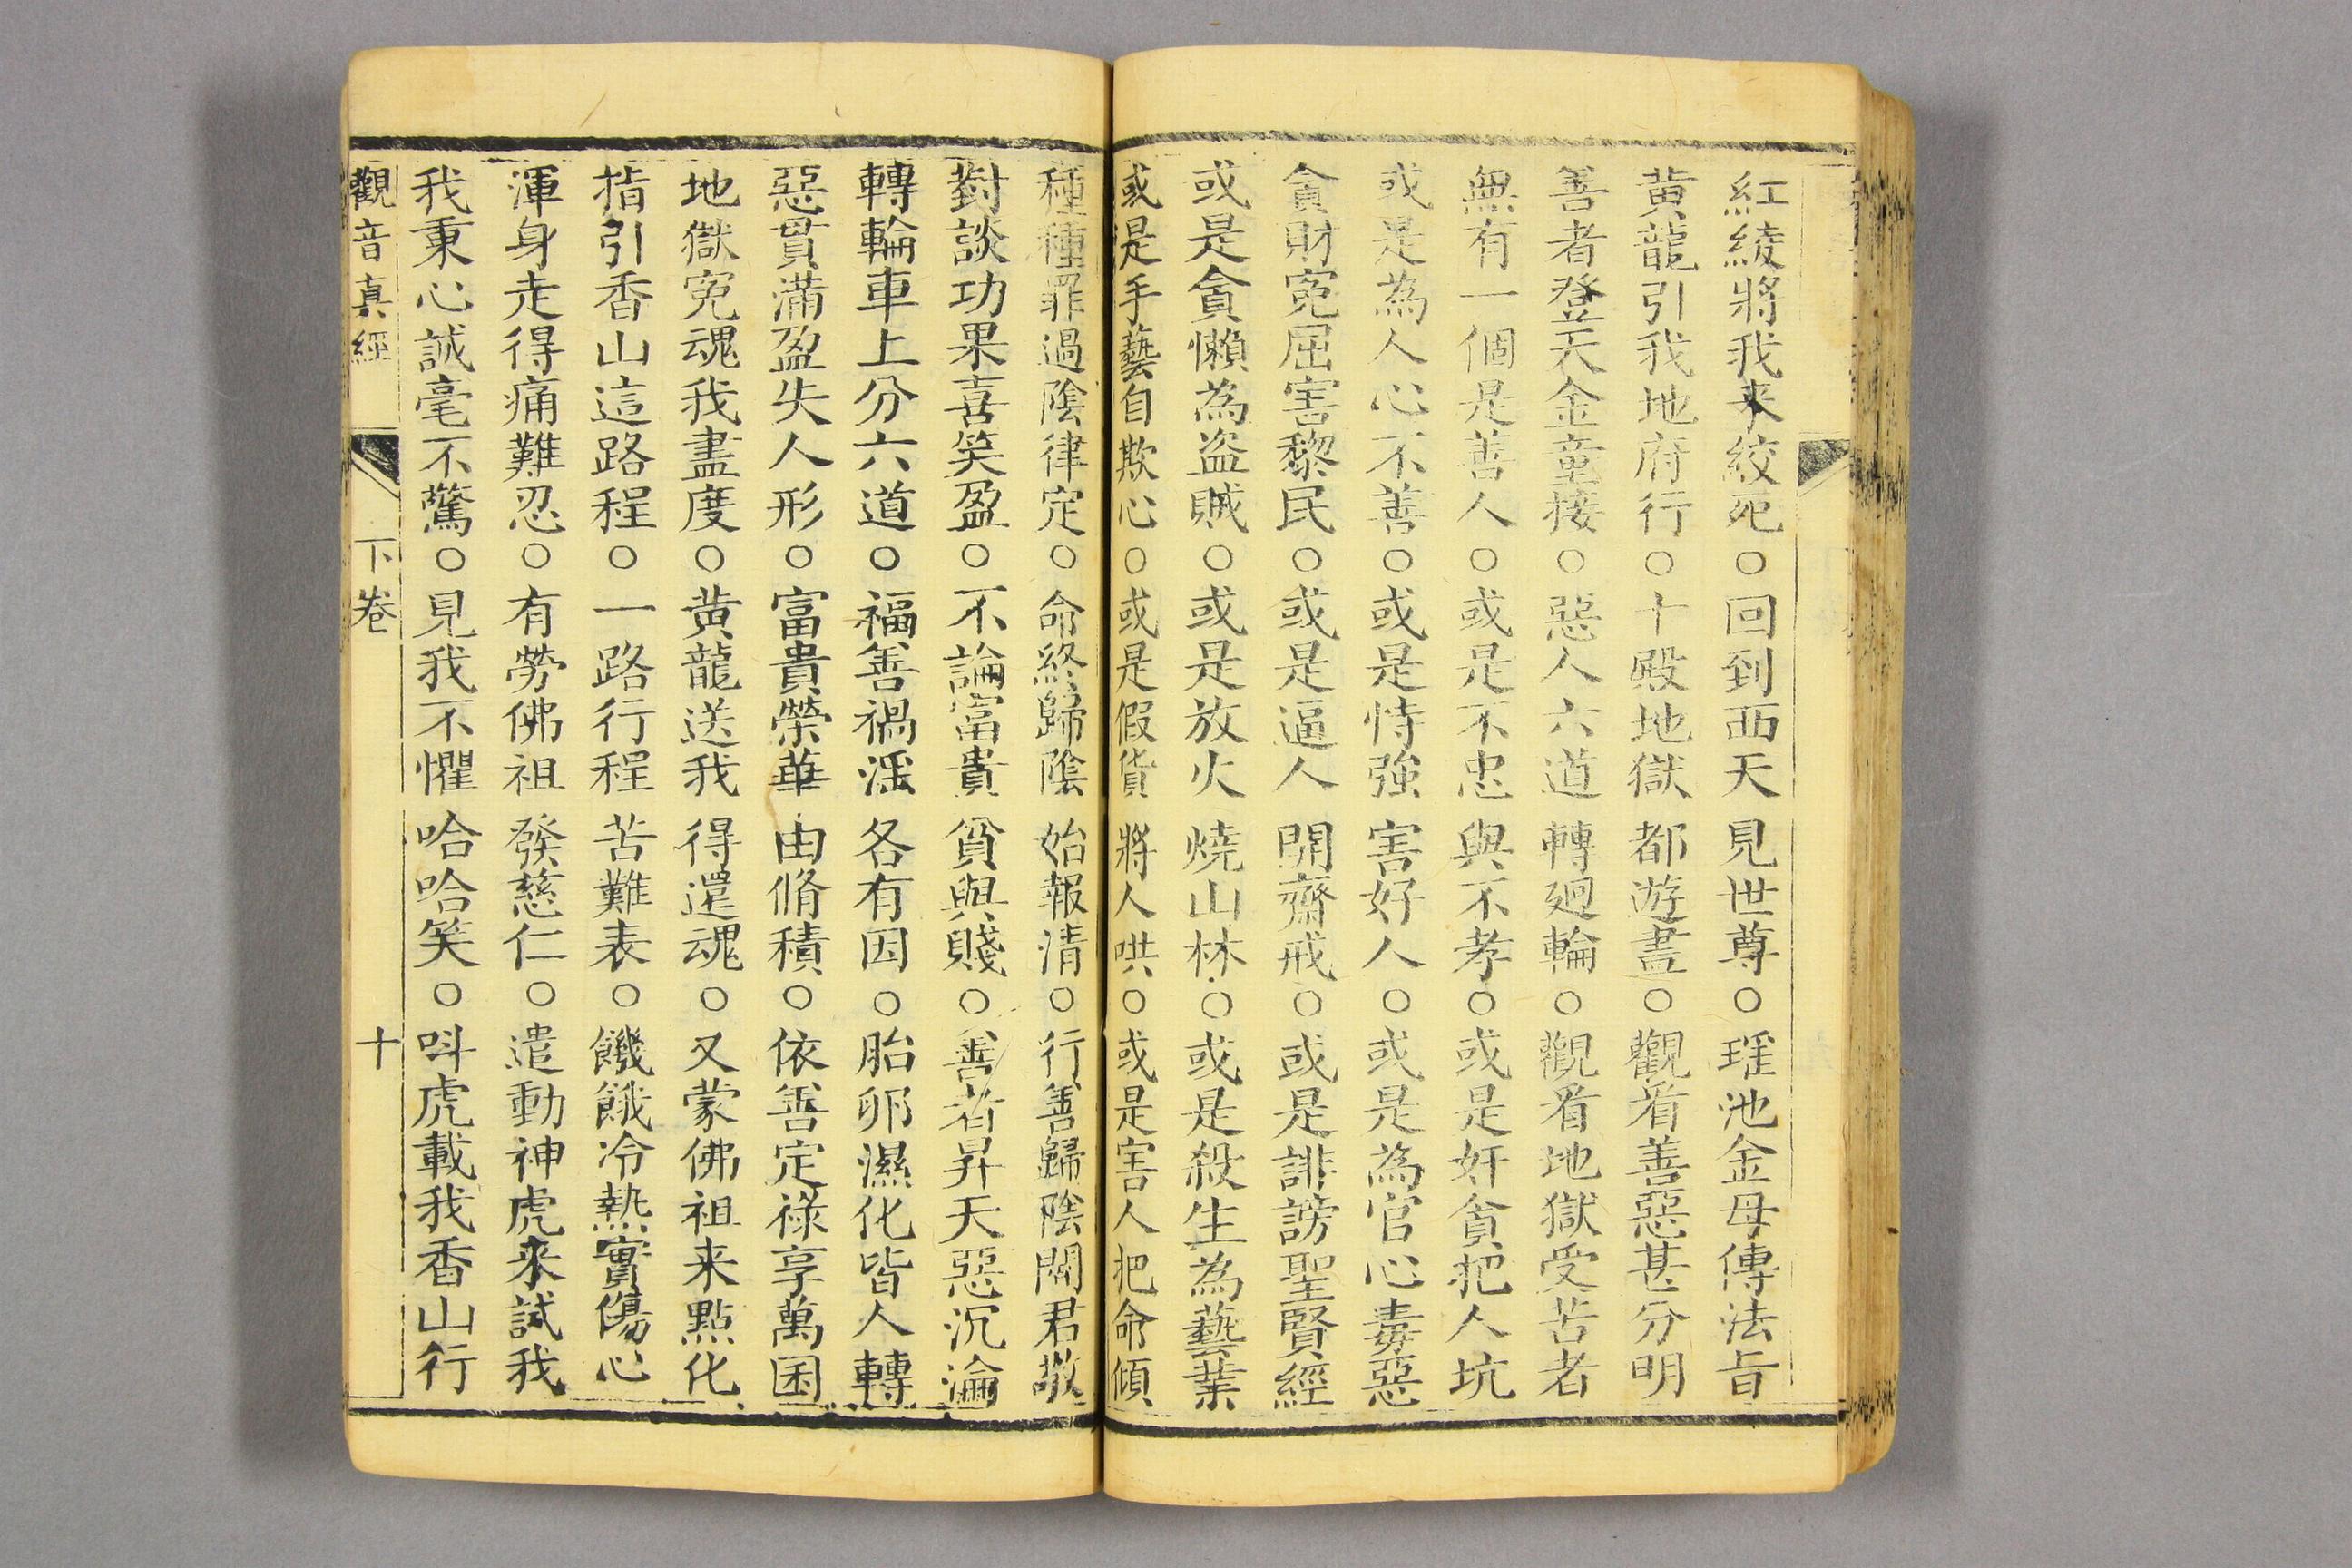 紅綾將我来絞死○回到西天見世尊○瑶池金母傳法旨
黄龍引我地府行○十殿地獄都遊盡○觀看善惡甚分明
善者登天金童接○惡人六道轉廻輪○觀看地獄受苦者
無有一個是善人○或是不忠與不孝○或是奸貪把人坑
或是為人心不善○或是恃強害好人○或是為官心毒惡
貪財寃屈害黎民○或是逼人開齋戒○或是誹謗聖賢經
或是貪懶為盗賊○或是放火燒山林○或是殺生為藝業
或是手藝自欺心○或是假貨將人哄○或是害人把命傾
種種罪過陰律定○命終歸陰始報清○行善歸陰閻君敬
對談功果喜笑盈○不論富貴貧與賤○善者昇天惡沉淪
轉輪車上分六道○福善禍淫各有因○胎卵濕化皆人轉
惡貫滿盈失人形○富貴榮華由脩積○依善定祿享萬囷
地獄寃魂我盡度○黄龍送我得還魂○又蒙佛祖来點化
指引香山這路程○一路行程苦難表○饑餓冷熱實傷心
渾身走得痛難忍○有勞佛祖發慈仁○遣動神虎来試我
我秉心誠毫不驚○見我不懼哈哈笑○呌虎載我香山行
觀音真經 下卷 十